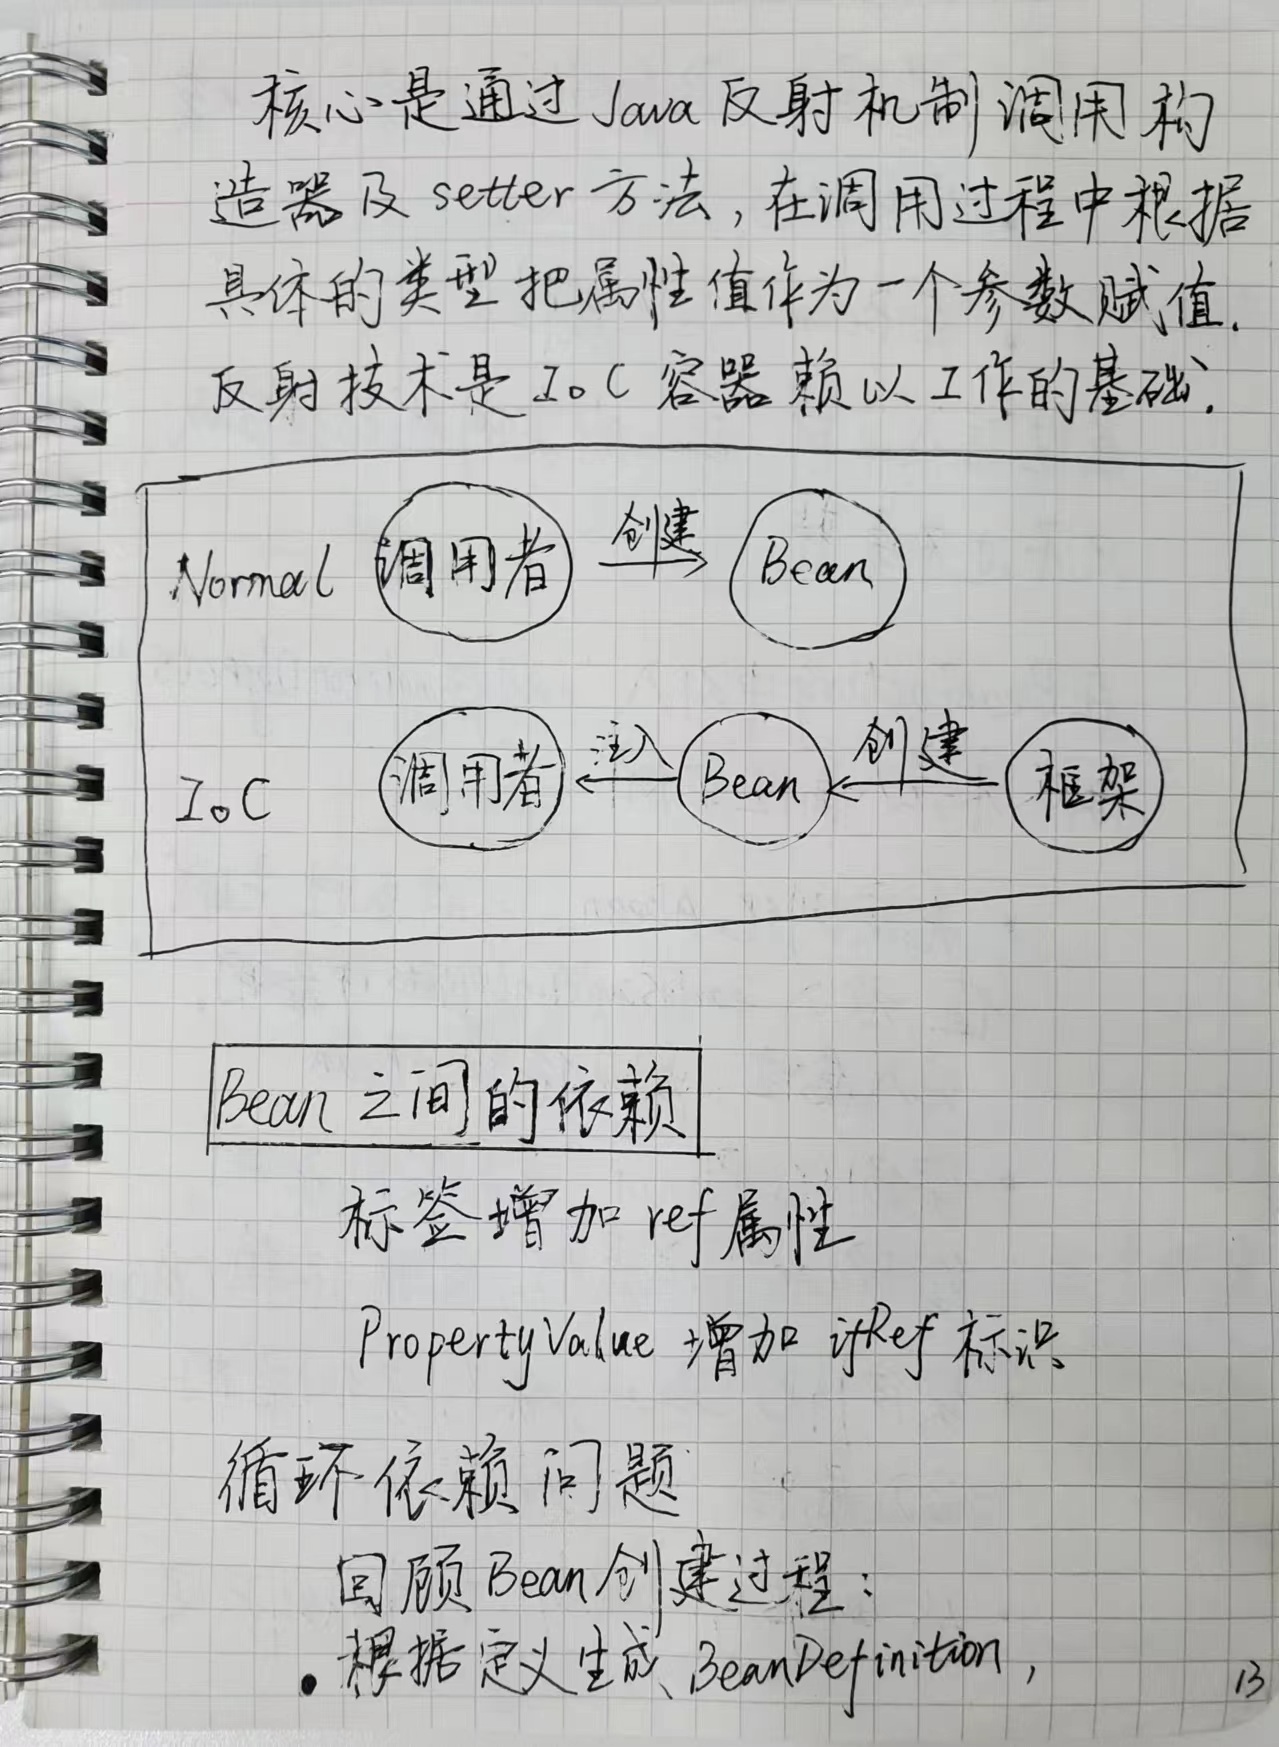 核心是通过Java反射机制调用构
造器及setter方法,在调用过程中根据
具体的类型把属性值作为一个参数赋值.
反射技术是IoC容器赖以工作的基础.
Normal 调用者 创建 Bean
IoC 调用者 注入 Bean 创建 框架
Bean之间的依赖
标签增加ref属性
PropertyValue 增加 ifRef 标识
循环依赖问题
回顾Bean创建过程:
• 根据定义生成BeanDefinition,
13